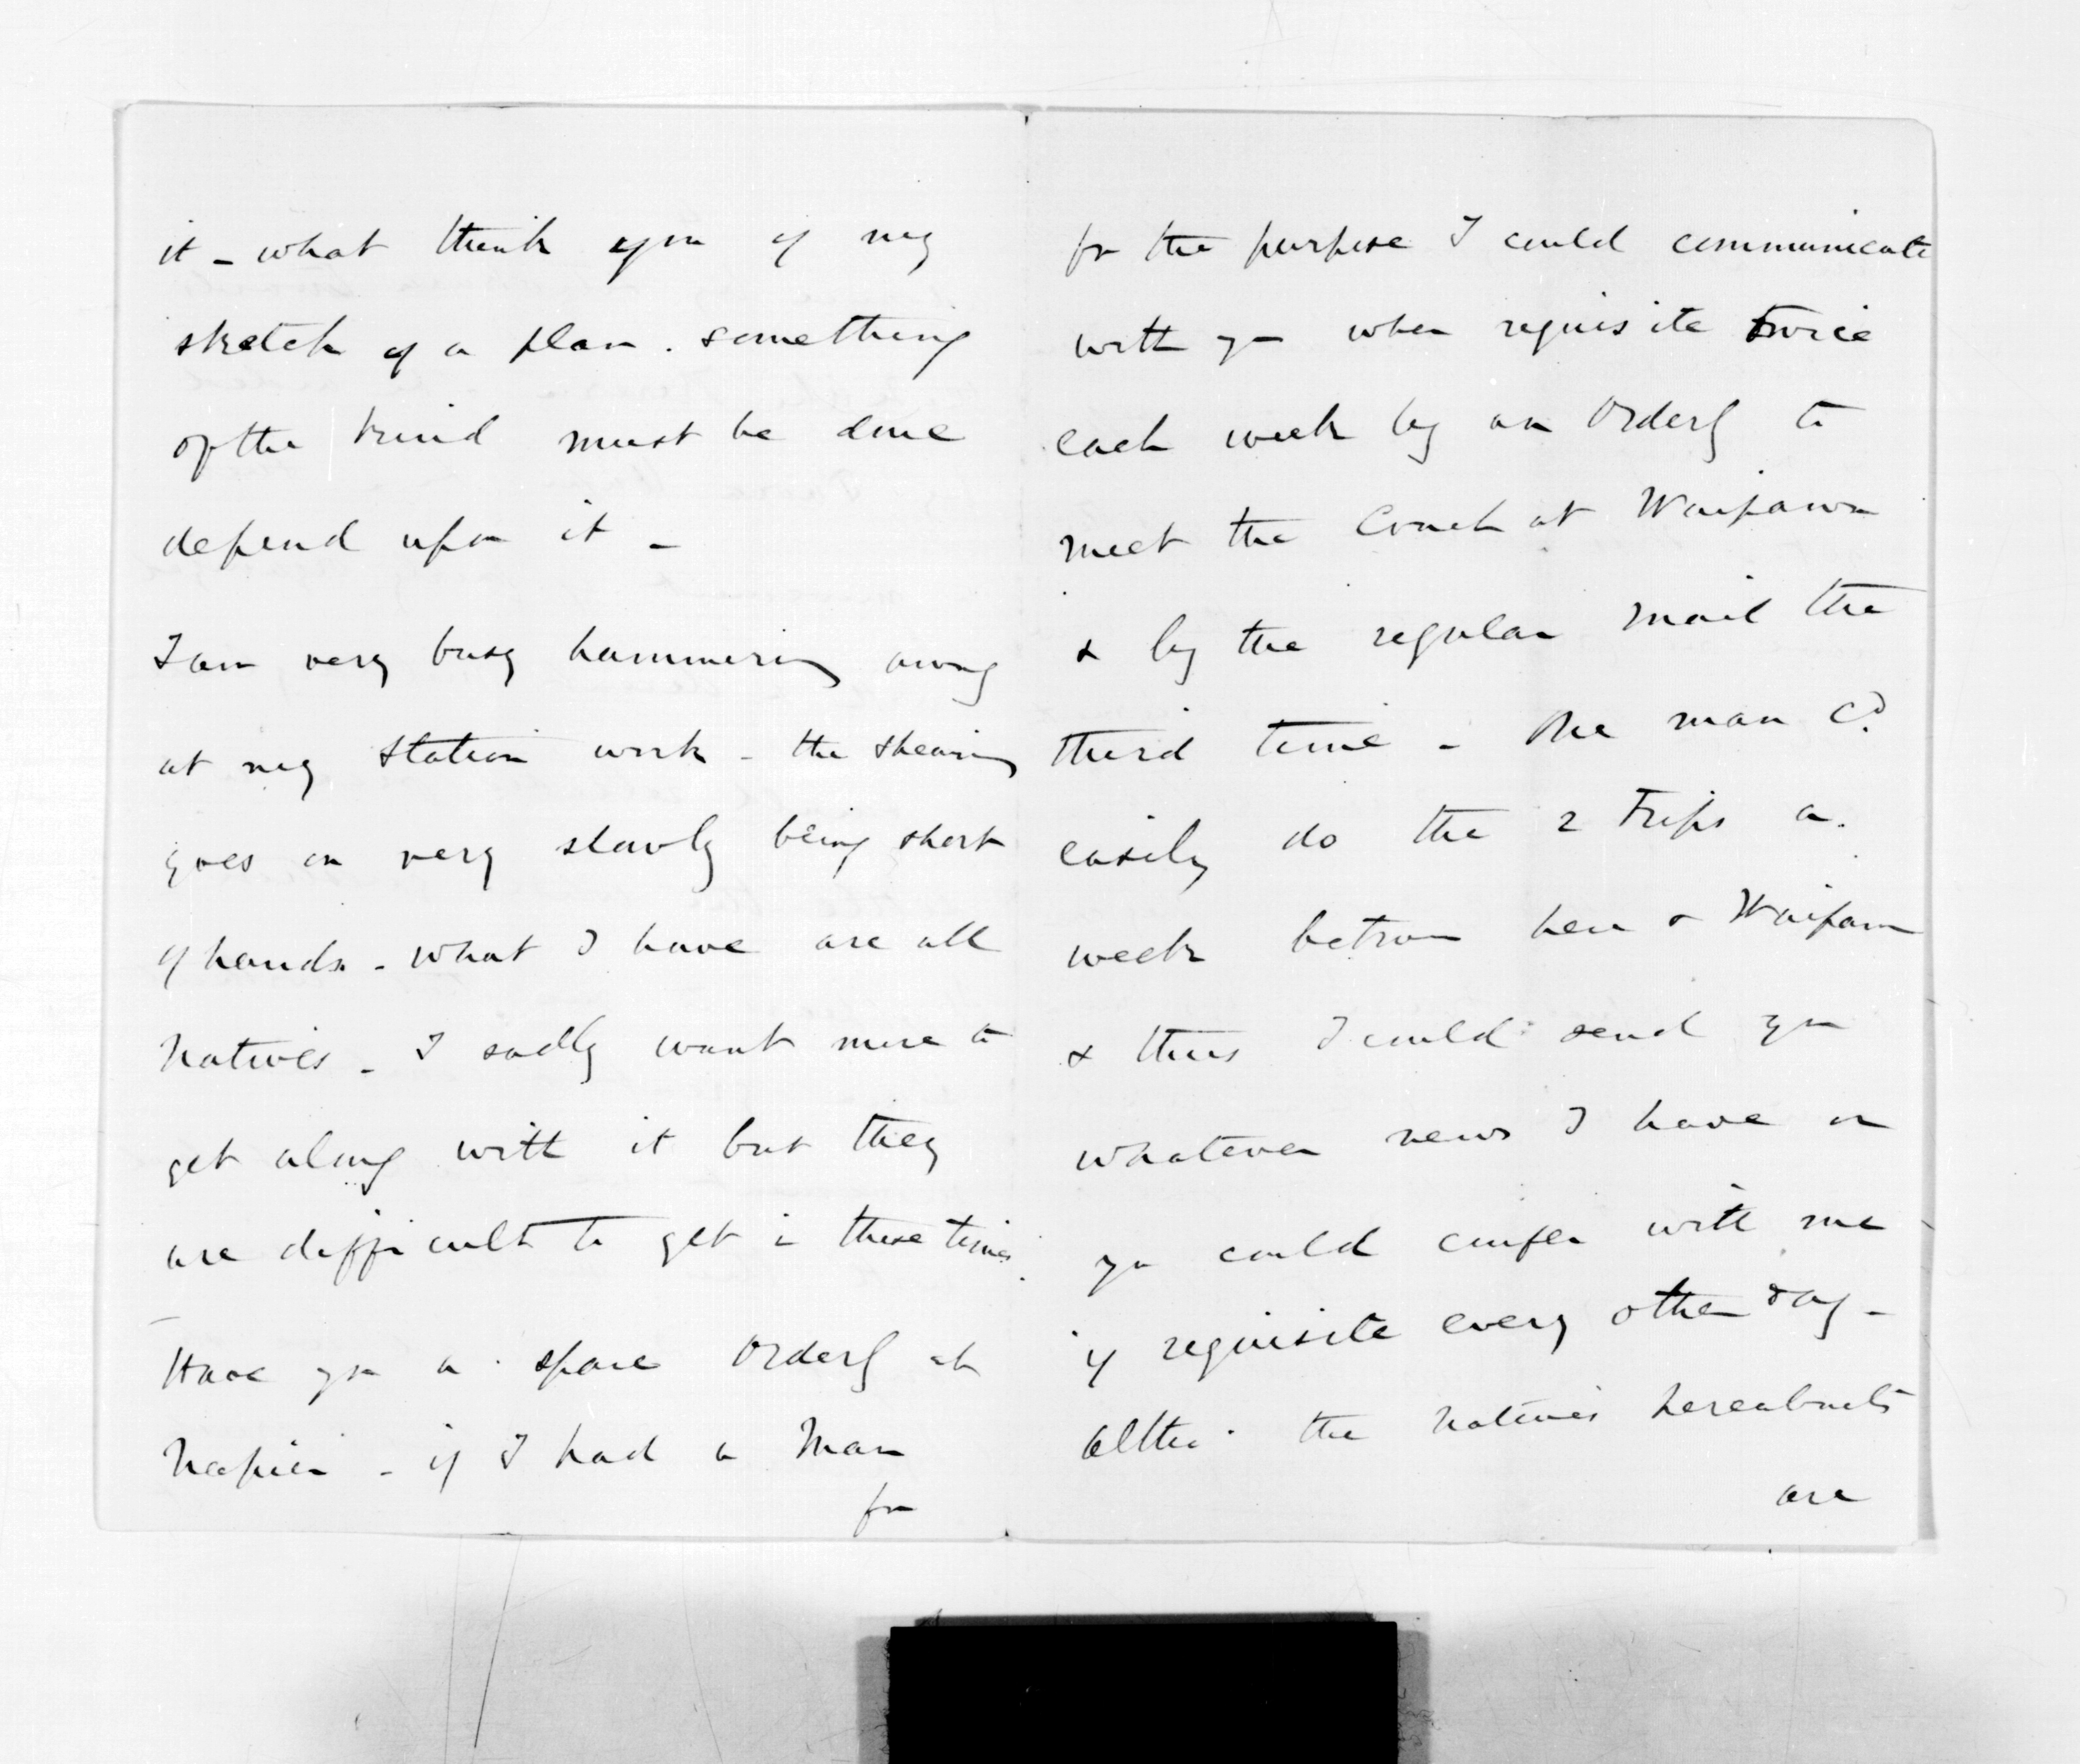 it - what think you of my
sketch of a plan. something
of the kind must be done
depend upon it -
I am very busy hammering away
at my Station work - the shearing
goes on very slowly being short
of hands - what I have are all
Natives - I sadly want more to
get along with it but they
are difficult to get in these times.
Have you a spare Orderly at
Napier - if I had a Man
for
for the purpose I could communicate
with you when requisite twice
each week by an Orderly to
meet the Coach at Waipawa
& by the regular Mail the
third time - The man cd.
easily do the 2 Trips a
week between here & Waipawa
& thus I could send you
whatever news I have or
you could confer with me
if requisite every other day -
altho' the Natives hereabouts
are